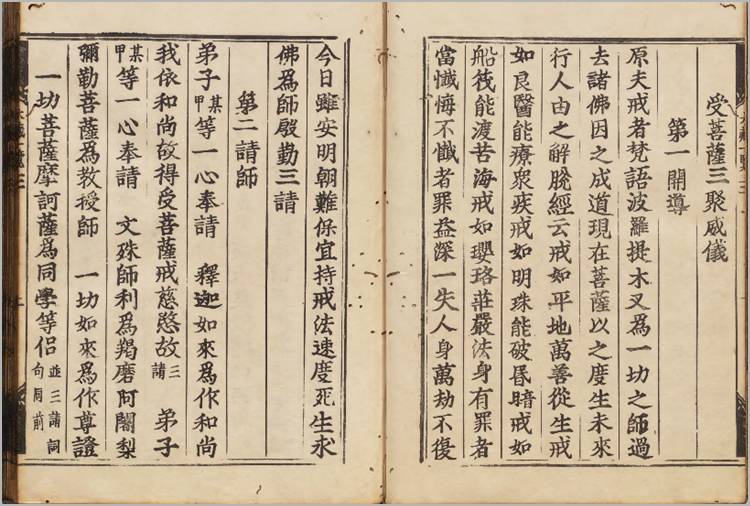 受菩薩三聚威儀
第一開導
原夫戒者梵語波羅提木叉爲一切之師過
去諸佛因之成道現在菩薩以之度生未來
行人由之解脫經云戒如平地萬善從生戒
如良醫能療衆疾戒如明珠能破昏暗戒如
船筏能渡苦海戒如瓔珞莊嚴法身有罪者
當懺悔不懺者罪益深一失人身萬劫不復
今日雖安明朝難保宜持戒法速度死生求
佛爲師殷勤三請
第二請師
弟子某甲等一心奉請 釋迦如來爲作和尚
我依和尚故得受菩薩戒慈愍故三請 弟子
某甲等一心奉請 文殊師利爲羯磨阿闍梨
彌勒菩薩爲教授師 一切如來爲作尊證
一切菩薩摩訶薩爲同學等侶並三請詞句同前